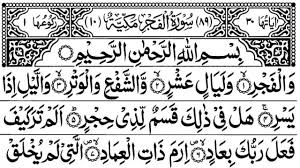 اٰيَاتُهَا ٣٠ (٨٩) سُوْرَةُ الْفَجْرِ مَكِّيَّةٌ (١٠) رُكُوْعُهَا ١
بِسْمِ اللّٰهِ الرَّحْمٰنِ الرَّحِيْمِ
وَالْفَجْرِ ۙ﴿١﴾ وَلَيَالٍ عَشْرٍ ۙ﴿٢﴾ وَّالشَّفْعِ وَالْوَتْرِ ۙ﴿٣﴾ وَالَّيْلِ اِذَا
يَسْرِ ۚ﴿٤﴾ هَلْ فِيْ ذٰلِكَ قَسَمٌ لِّذِيْ حِجْرٍ ؕ﴿٥﴾ اَلَمْ تَرَ كَيْفَ
فَعَلَ رَبُّكَ بِعَادٍ ۙ﴿٦﴾ اِرَمَ ذَاتِ الْعِمَادِ ۙ﴿٧﴾ الَّتِيْ لَمْ يُخْلَقْ